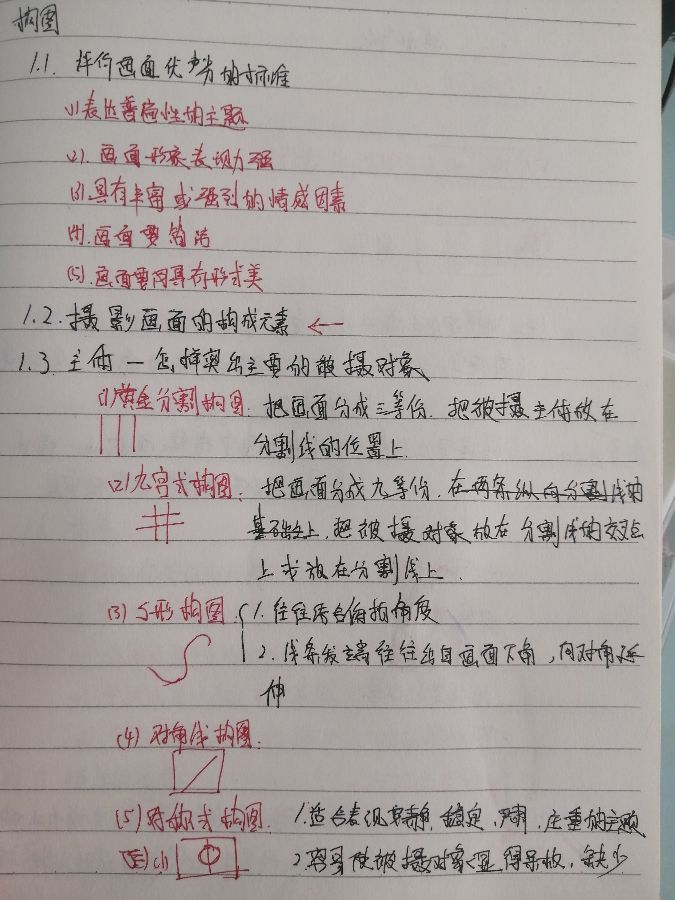 构图
1.1. 评价画面优劣的标准
(1)表达普遍性的主题
(2). 画面形象表现力强
(3).具有丰富或强烈的情感因素
(4).画面要简洁
(5).画面要具有形式美
1.2.摄影画面的构成元素 ←
1.3.主体 — 怎样突出主要的被摄对象
(1)黄金分割构图. 把画面分成三等份. 把被摄主体放在
分割线的位置上.
(2)九宫式构图. 把画面分成九等份. 在两条纵向分割线的
基础上. 把被摄对象放在分割线的交点
上或放在分割线上.
(3) S形构图. 1.往往结合俯拍角度
2.线条发端往往出自画面下角，向对角延
伸
(4) 对角线构图.
(5)对称式构图. 1.适合表现安静.稳定.严肃.庄重的主题
2.容易使被摄对象显得呆板.缺少